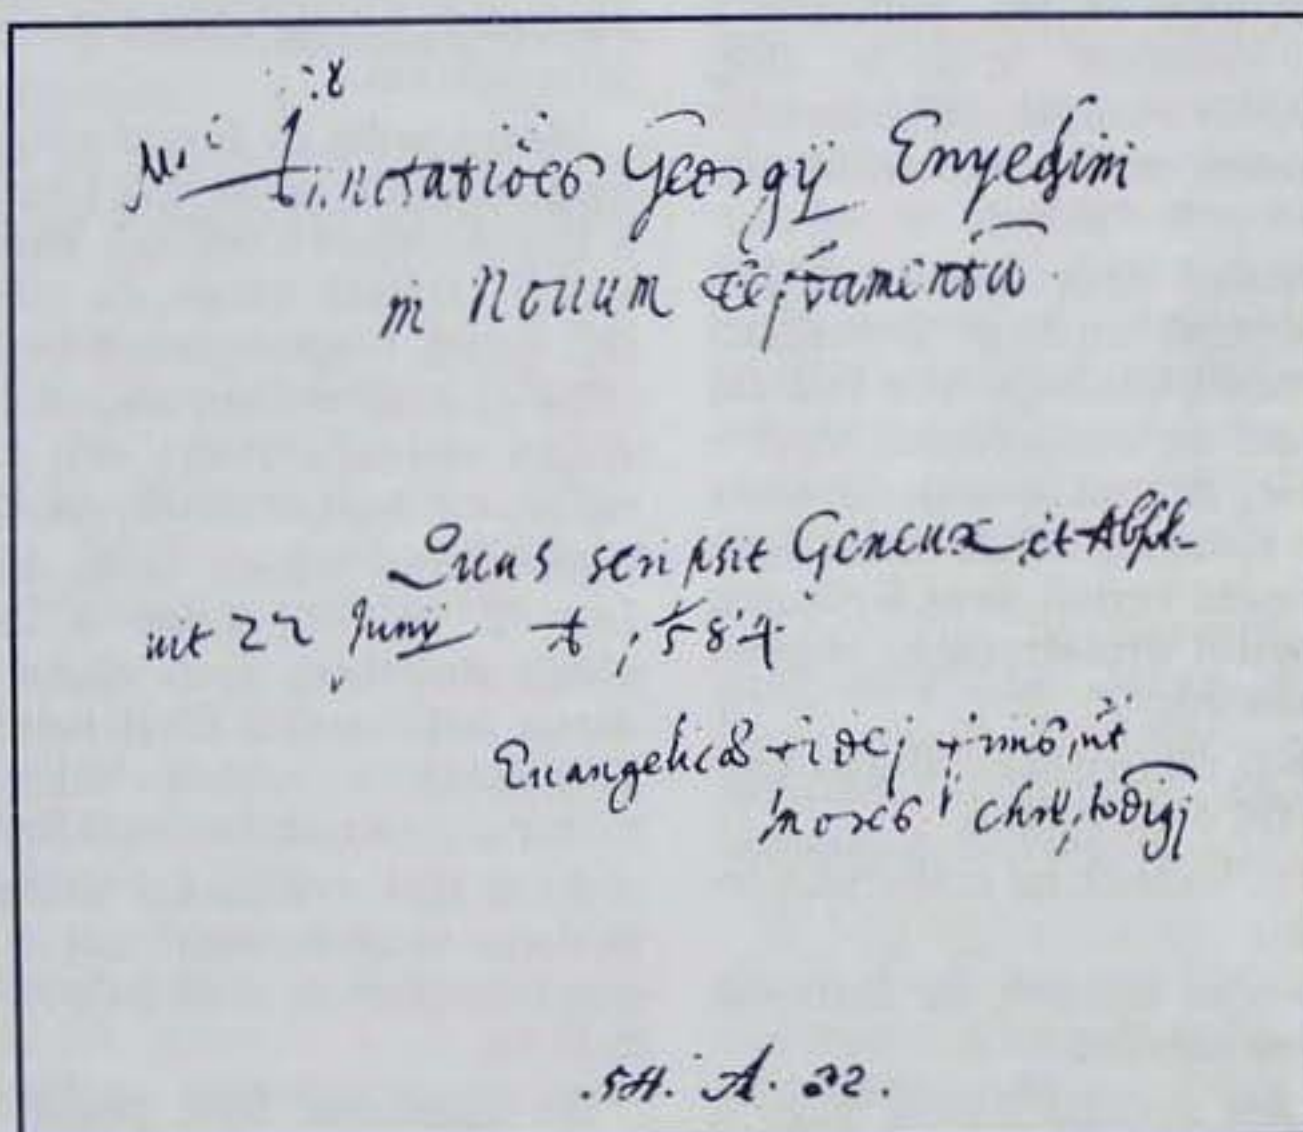 Annotatiões Georgij Enyedini
in Nouum testamentũ
Quas scripsit Geneuæ, et Absol-
uit 22 Junij A 1584
Euangelicæ fidej
mores
A. 22.